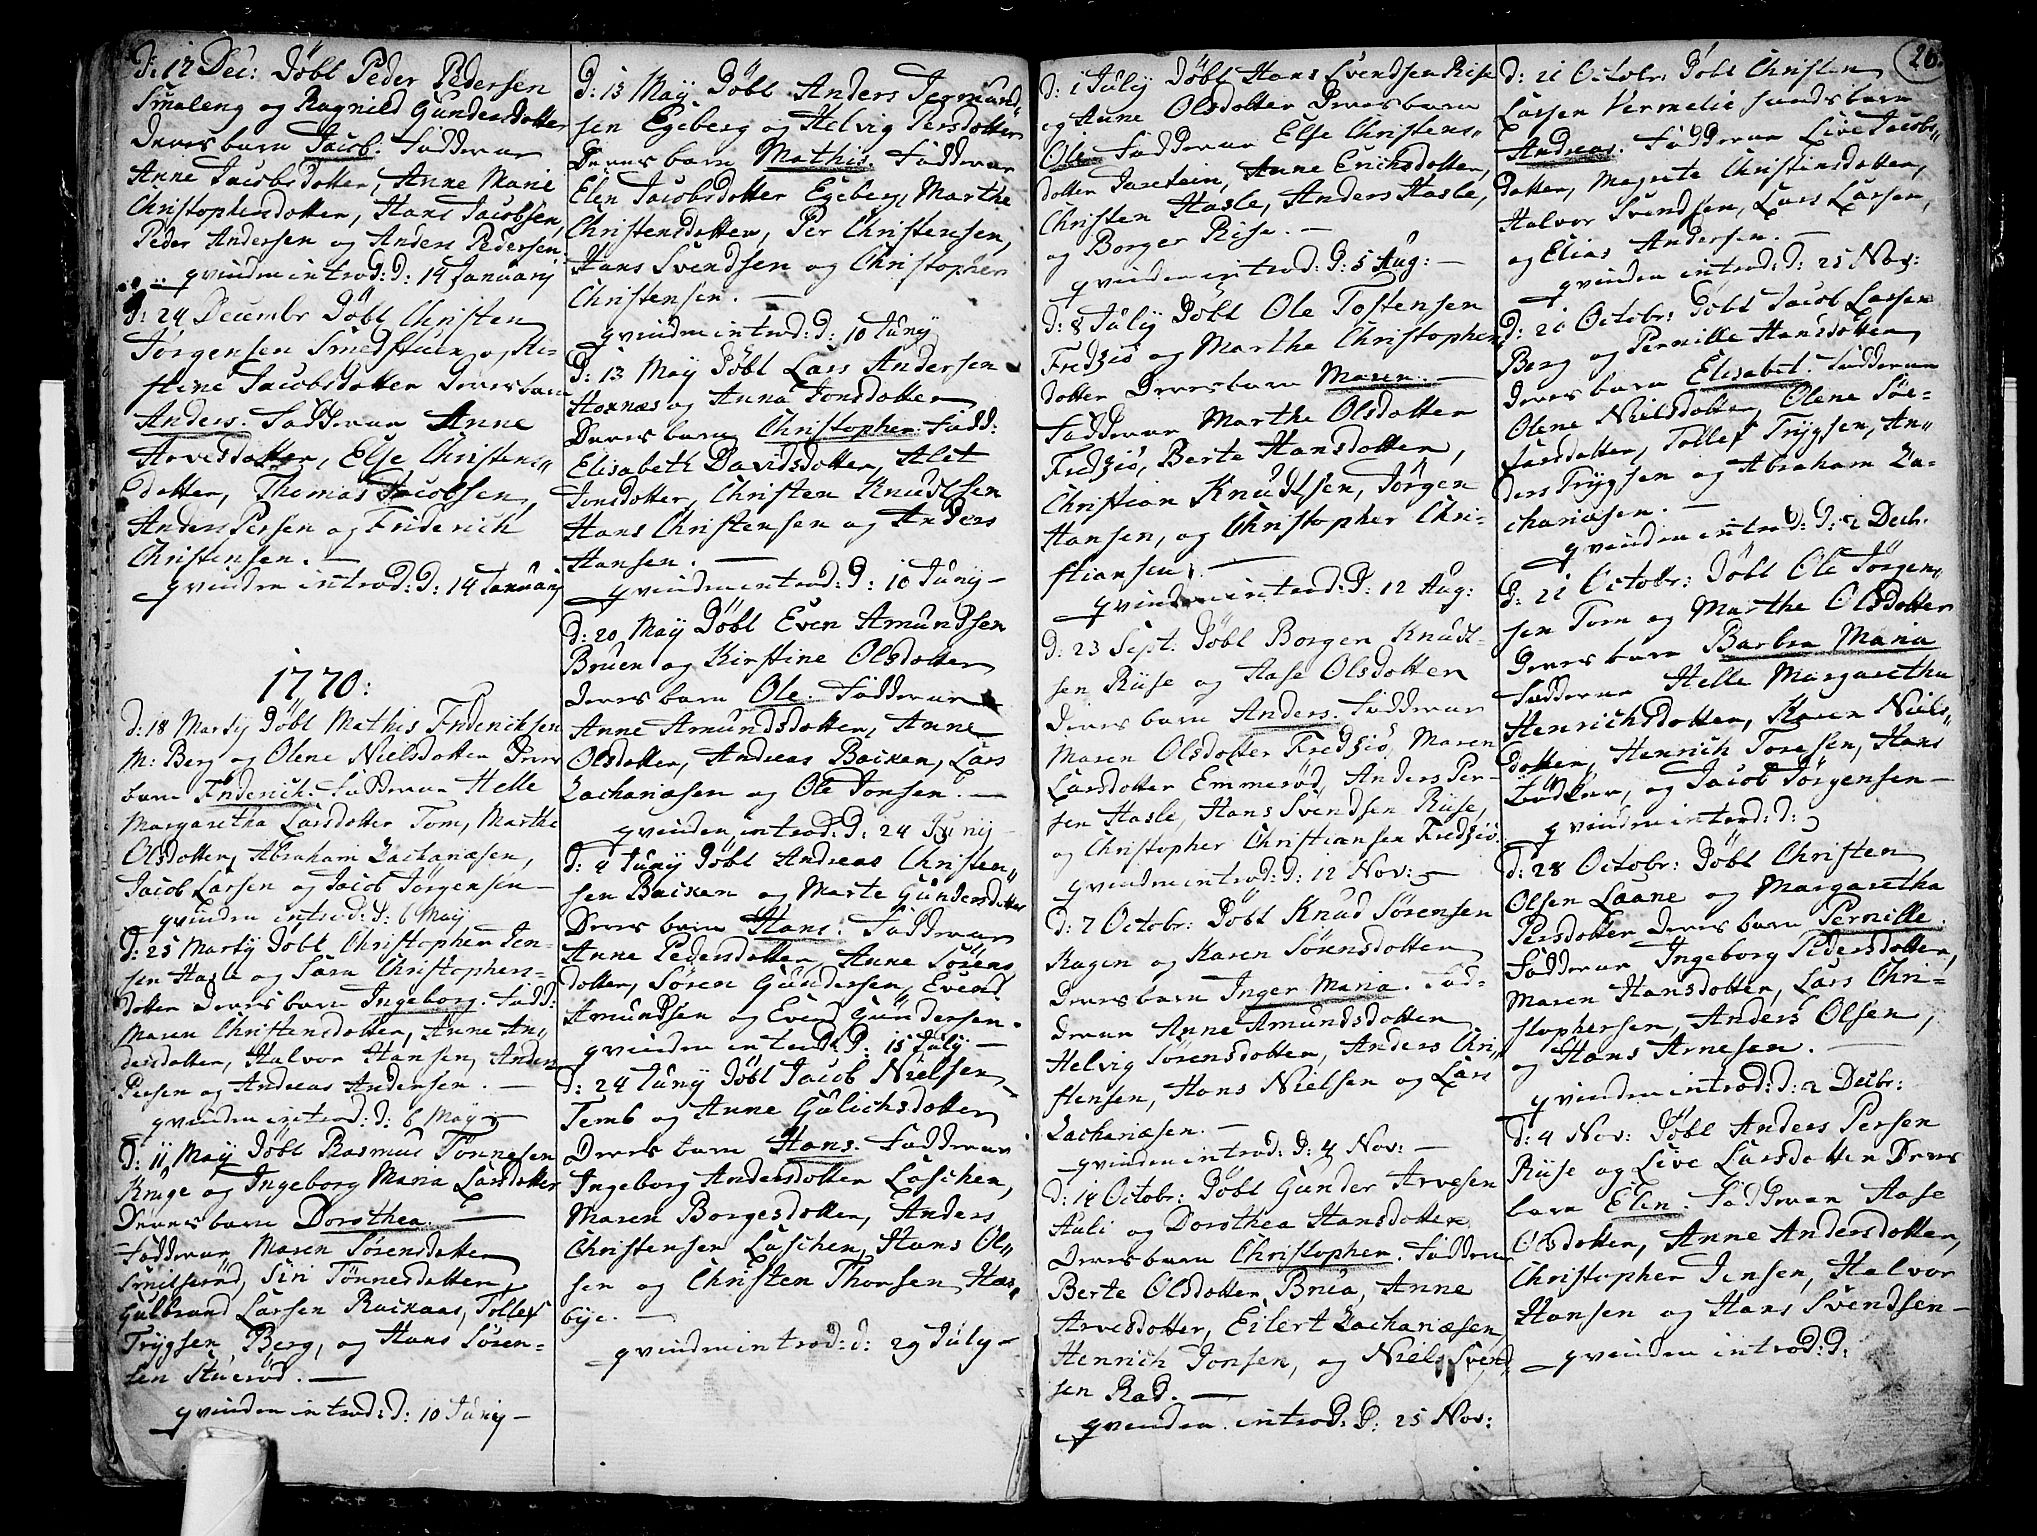 D: 17 Dec: Döbt Peder Pedersen
Smaleng og Ragnild Gundersdotter
Deres barn Jacob. Fadderne
Anne Jacobsdotter, Anne Marie
Christophersdotter, Hans Jacobsen,
Peder Andersen og Anders Pedersen
qvinden introd: d: 14 January
d: 24 Decembr Döbt Christen
Jörgensen Smedstuen og Ki-
stine Jacobsdotter Deres barn
Anders. Fadderne Anne
Arvesdotter, Else Christens"
dotter, Thomas Jacobsen,
Anders Persen og Friderich
Christensen. —
qvinden introd: d: 14 January
1770:
d: 18 Martÿ Döbt Mathis Friderichsen
M: Berg og Olene Nielsdotter Deres
barn Friderich. Fadderne Helle
Margaretha Larsdotter Tom, Marthe
Olsdotter, Abraham Zachariæsen,
Jacob Larsen og Jacob Jörgensen —
qvinden introd: d: 6 Maÿ
d: 25 Martÿ Döbt Christopher Jen-
sen Hasle og Sara Christophers-
dotter Deres barn Ingeborg. Fadd:
Maren Christensdotter, Anne An"
dersdotter, Halvor Hansen, Anders
Persen og Andreas Andersen. —
qvinden introd: d: 6 Maÿ
D: 11 Maÿ Döbt Rasmus Tönnesen
Kruge og Ingeborg Maria Larsdotter
Deres barn Dorothea. —
Fadderne Maren Sörensdotter
Smitseröd, Siri Tönnesdotter
Gulbrand Larsen Rackaas, Tollef
Trÿgsen Berg, og Hans Sören-
sen Stueröd. —
qvinden introd: d: 10 Junÿ —
D: 13 Maÿ Döbt Anders Jermund
sen Egeberg og Helvig Persdotter
Deres barn Mathis. Fadderne
Elen Jacobsdotter Egeberg, Marthe
Christensdotter, Per Christensen,
Hans Svendsen og Christopher
Christensen. —
qvinden introd: d: 10 Junÿ
D: 13 Maÿ Döbt Lars Andersen
Hoxnæs og Anna Jonsdotter
Deres barn Christopher. Fadd:
Elisabeth Davidsdotter, Alet
Jonsdotter, Christen Knudtsen
Hans Christensen og Anders
Hansen. —
qvinden introd: d: 10 Junÿ —
d: 20 Maÿ Döbt Even Amundsen
Bruen og Kirstine Olsdotter
Deres barn Ole. Fadderne
Anne Amundsdotter, Anne
Olsdotter, Andreas Backen, Lars
Zachariæsen og Ole Jonsen. —
qvinden introd: d: 24 Junÿ —
D: 4 Junÿ Döbt Andreas Christen"
sen Backen og Marte Gundersdotter
Deres barn Hans. Fadderne
Anne Pedersdotter, Anne Sörens
dotter, Sören Gundersen, Evend
Amundsen og Evend Gundersen.
qvinden introd: d: 15 Julÿ —
D: 24 Junÿ Döbt Jacob Nielsen
Temb og Anne Gulichsdotter
Deres barn Hans. Fadderne
Ingeborg Andersdotter Laschen,
Maren Borgesdotter, Anders
Christensen Laschen, Hans Ol"
sen og Christen Thorsen Has"
bÿe. —
qvinden introd: d: 29 Julÿ —
D: 1 Julÿ Döbt Hans Svendsen Rise
og Aune Olsdotter Deres barn
Ole Fadderne Else Christens"
dotter Jarstein, Anne Erichsdotter,
Christen Hasle, Anders Hasle,
og Borger Rise. —
qvinden introd: d: 5 Aug: —
D: 8 Julÿ Döbt Ole Tostensen
Fredsiö og Marthe Christophers
dotter Deres barn Maren. —
Fadderne Marthe Olsdotter
Fredsiö, Berte Hansdotter,
Christian Knudtsen, Jörgen
Hansen, og Christopher Chri-
stiansen. —
qvinden introd: d: 12 Aug:
D: 23 Sept: Döbt Borgen Knudt-
sen Riise og Aase Olsdotter
Deres barn Anders. Fadderne
Maren Olsdotter Fredsiö, Maren
Larsdotter Emmeröd, Anders Per-
sen Hasle, Hans Svendsen Riise,
og Christopher Christiansen Fredsiö
qvinden introd: d: 12 Nov:
D: 7 Octobr: Döbt Knud Sörensen
Ragen og Karen Sörensdotter
Deres barn Inger Maria. Fad-
derne Anne Amundsdotter
Helvig Sörensdotter, Anders Chri
stensen, Hans Nielsen og Lars
Zachariæsen. —
qvinden introd: d: 4 Nov: —
D: 14 Octobr: Döbt Gunder Arvesen
Huli og Dorothea Hansdotter
Deres barn Christopher. Fadderne
Berte Olsdotter Brua, Anne
Arvesdotter, Eilert Zachariæsen,
Henrich Jonsen, og Niels Svend
sen Rad. —
qvinden introd: d: 25 Nov:
26.
D: 21 Octobr: Döbt Christen
Larsen Vermelie hands barn
Andreas. Fadderne Live Jacobs"
dotter, Magrete Christensdotter,
Halvor Svendsen, Lars Larsen,
og Elias Andersen. —
qvinden introd: d: 25 Nov:
D: 20 Octobr: Döbt Jacob Larsen
Berg og Pernille Hansdotter
Deres barn Elisabet. Fadderne
Olene Nielsdotter, Olene Söe-
farsdotter, Tollef Trÿgsen, An"
ders Trÿgsen og Abraham Za-
chariæsen. —
qvinden introd: d: 2 Decb.
D: 21 Octobr: Döbt Ole Jörgen
sen Tom og Marthe Olsdotter
Deres barn Barbra Maria
Fadderne Helle Margaretha
Henrichsdotter, Karen Niels"
dotter, Henrich Toresen, Hans
Bödker, og Jacob Jörgensen —
qvinden introd: d:
D: 28 Octobr: Döbt Christen
Olsen Laane og Margaretha
Persdotter Deres barn Pernille.
Fadderne Ingeborg Pedersdotter,
Maren Hansdotter, Lars Chri-
stophersen, Anders Olsen,
og Hans Arnesen. —
qvinden introd: d: 2 Decbr:
D: 4 Nov: Döbt Anders Persen
Riise og Live Larsdotter Deres
barn Elen. Fadderne Aase
Olsdotter, Anne Andersdotter,
Christopher Jensen, Halvor
Hansen og Hans Svendsen —
qvinden introd: d: